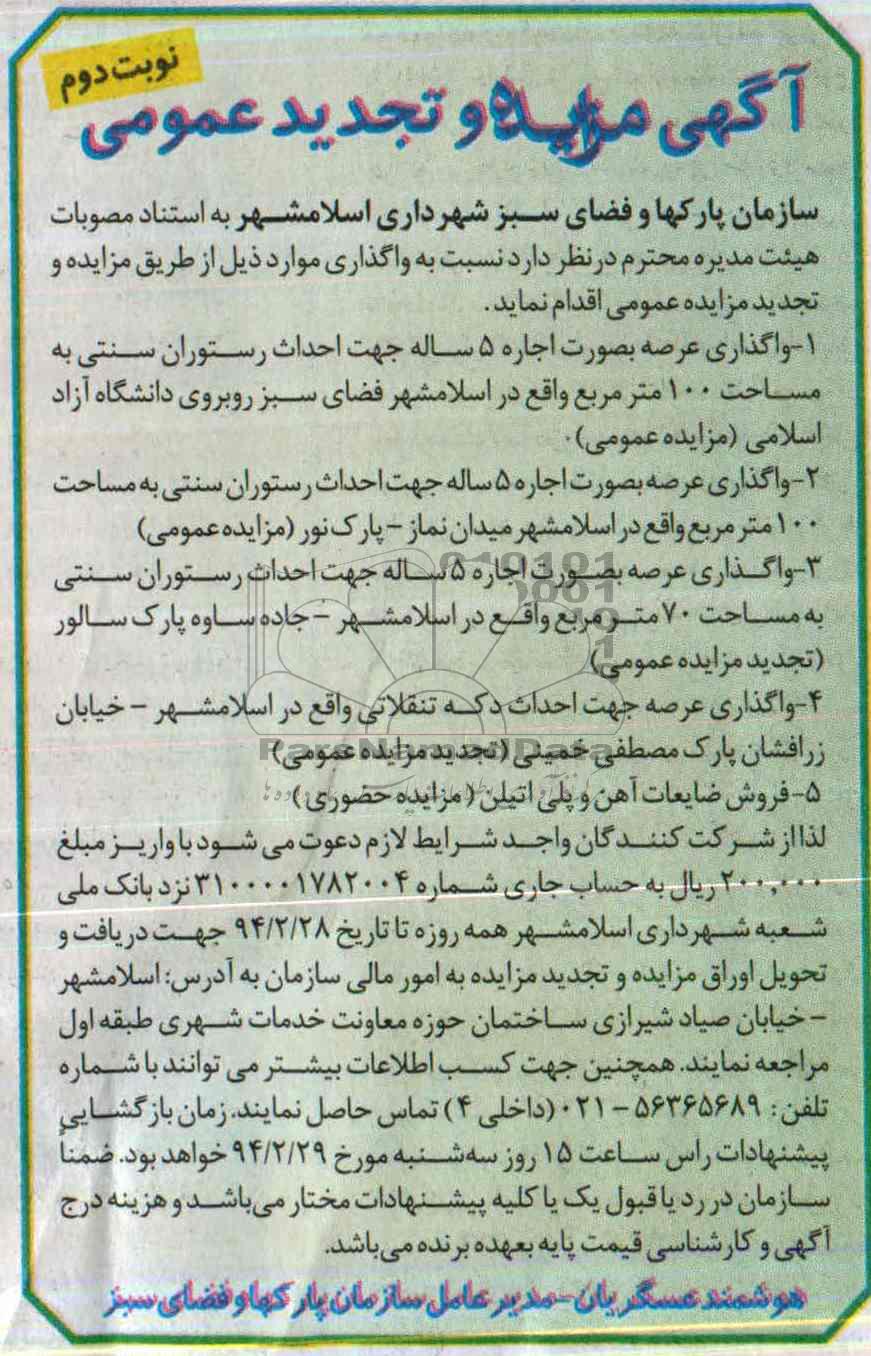 نوبت دوم
آگهی مزایده و تجدید عمومی
سازمان پارکها و فضای سبز شهرداری اسلامشهر به استناد مصوبات
هیئت مدیره محترم درنظر دارد نسبت به واگذاری موارد ذیل از طریق مزایده و
تجدید مزایده عمومی اقدام نماید.
۱-واگذاری عرصه بصورت اجاره ۵ ساله جهت احداث رستوران سنتی به
مساحت ۱۰۰ متر مربع واقع در اسلامشهر فضای سبز روبروی دانشگاه آزاد
اسلامی (مزایده عمومی).
۲-واگذاری عرصه بصورت اجاره ۵ ساله جهت احداث رستوران سنتی به مساحت
۱۰۰ متر مربع واقع در اسلامشهر میدان نماز – پارک نور (مزایده عمومی)
۳-واگذاری عرصه بصورت اجاره ۵ ساله جهت احداث رستوران سنتی
به مساحت ۷۰ متر مربع واقع در اسلامشهر – جاده ساوه پارک سالور
(تجدید مزایده عمومی)
۴-واگذاری عرصه جهت احداث دکه تنقلاتی واقع در اسلامشهر – خیابان
زرافشان پارک مصطفی خمینی (تجدید مزایده عمومی)
ParsNamadData
۵-فروش ضایعات آهن و پلی اتیلن (مزایده حضوری)
لذا از شرکت کنندگان واجد شرایط لازم دعوت می شود با واریز مبلغ
۲۰۰,۰۰۰ ریال به حساب جاری شماره ۳۱۰۰۰۰۱۷۸۲۰۰۴ نزد بانک ملی
شعبه شهرداری اسلامشهر همه روزه تا تاریخ ۹۴/۲/۲۸ جهت دریافت و
تحویل اوراق مزایده و تجدید مزایده به امور مالی سازمان به آدرس: اسلامشهر
– خیابان صیاد شیرازی ساختمان حوزه معاونت خدمات شهری طبقه اول
مراجعه نمایند. همچنین جهت کسب اطلاعات بیشتر می توانند با شماره
تلفن: ۵۶۳۶۵۶۸۹ – ۰۲۱ (داخلی ۴) تماس حاصل نمایند. زمان بازگشایی
پیشنهادات راس ساعت ۱۵ روز سه‌شنبه مورخ ۹۴/۲/۲۹ خواهد بود. ضمناً
سازمان در رد یا قبول یک یا کلیه پیشنهادات مختار می‌باشد و هزینه درج
آگهی و کارشناسی قیمت پایه بعهده برنده می‌باشد.
هوشمند عسگریان-مدیر عامل سازمان پارکها و فضای سبز